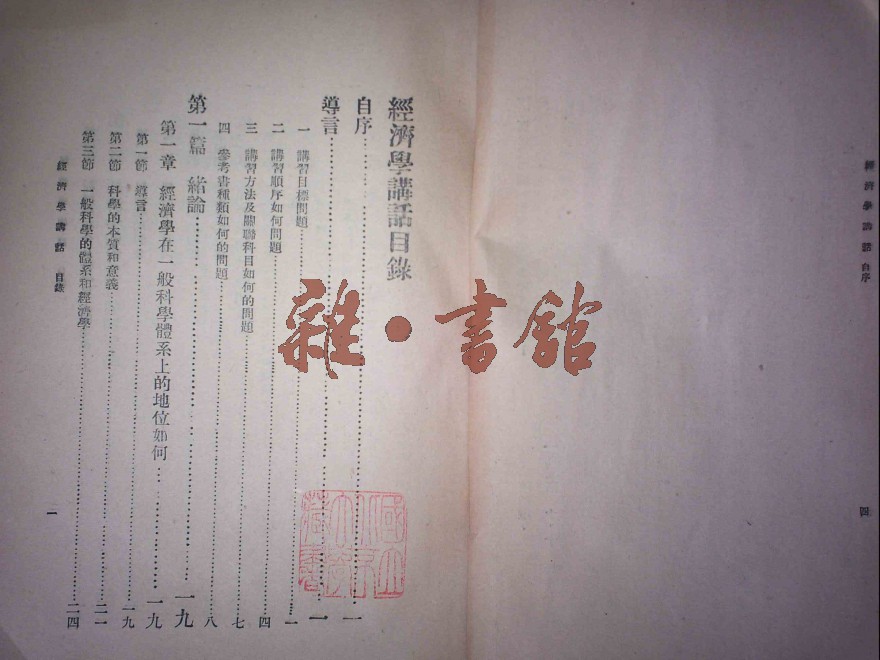 經濟學講話 自序
四
經濟學講話目錄
自序……一
導言……一
一 講習目標問題……一
二 講習順序如何問題……四
三 講習方法及關聯科目如何的問題……七
四 參考書種類如何的問題……八
第一篇 緒論……一九
第一章 經濟學在一般科學體系上的地位如何……一九
第一節 導言……一九
第二節 科學的本質和意義……二一
第三節 一般科學的體系和經濟學……二四
經濟學講話 目錄
一
雜·書館
國立北平大學藏書